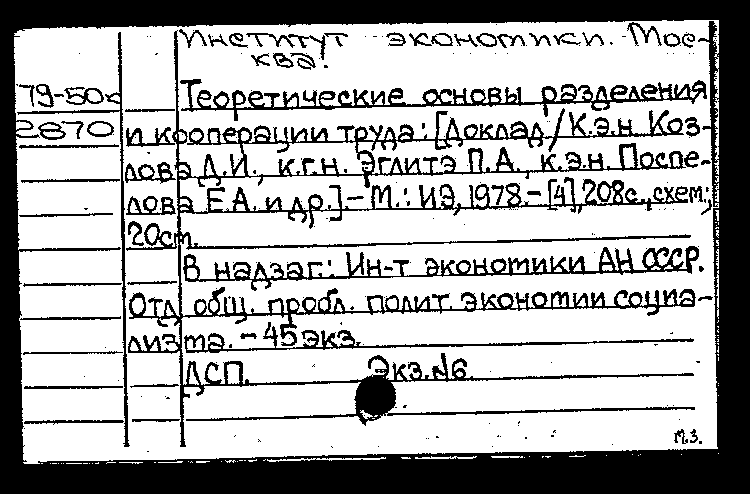 Институт экономики. Мос-
ква.
79-50к Теоретические основы разделения
2870 и кооперации труда: [Доклад/К.э.н. Коз-
лова Д.И., к.г.н. Эглитэ П.А., к.э.н. Поспе-
лова Е.А. и др.]-М.: ИЭ, 1978.-[4], 208с., схем;
20см.
В надзаг.: Ин-т экономики АН СССР.
Отд общ. пробл. полит. экономии социа-
лизма. - 45 экз.
ДСП. Экз.№6.
м.з.